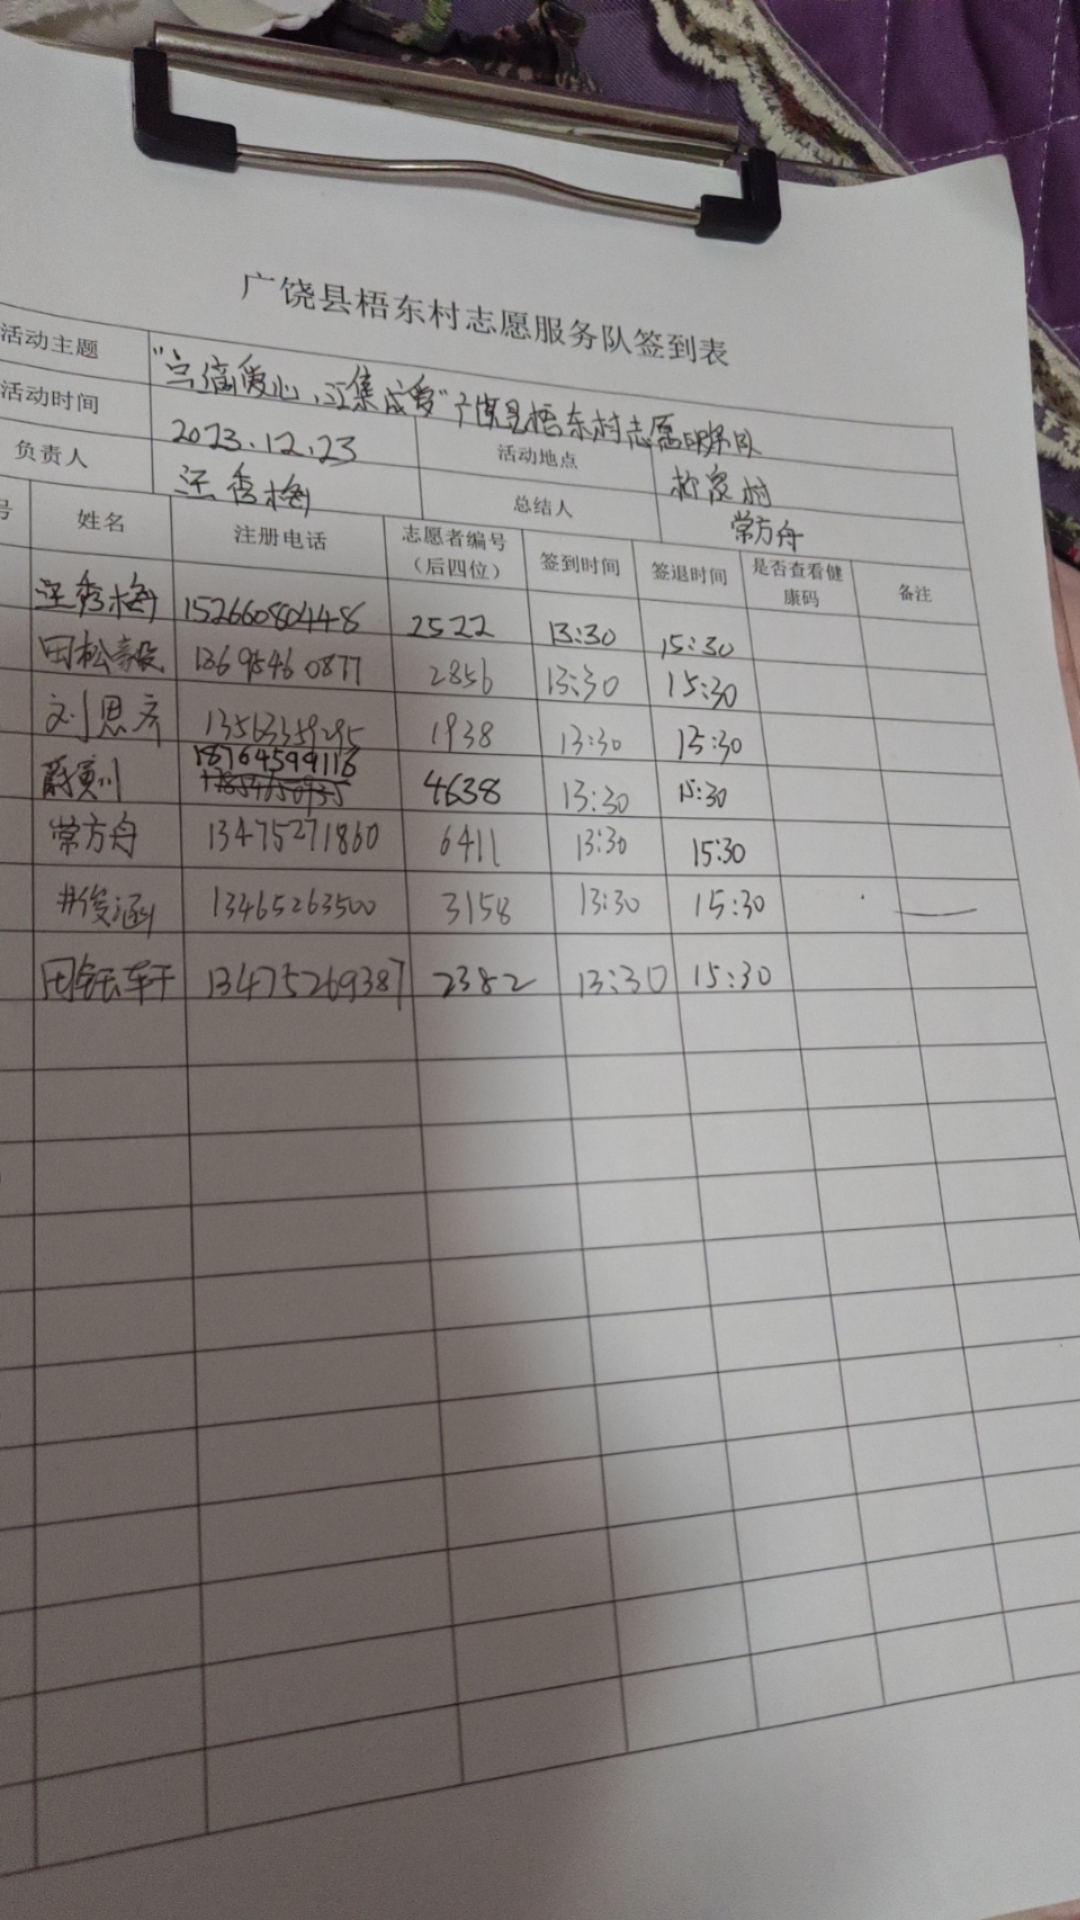 广饶县梧东村志愿服务队签到表
活动主题 "点滴爱心,汇集成爱"广饶县梧东村志愿服务队
活动时间 2023.12.23 活动地点 村
负责人 汪秀梅 总结人 常方舟
号 姓名 注册电话 志愿者编号(后四位) 签到时间 签退时间 是否查看健康码 备注
汪秀梅 15266080448 2522 13:30 15:30
田松毅 2856 13:30 15:30
刘思齐 1938 13:30 15:30
18764599116 4638 13:30 15:30
常方舟 13475271860 6411 13:30 15:30
井俊涵 13465263500 3158 13:30 15:30
田 13475269387 2382 13:30 15:30